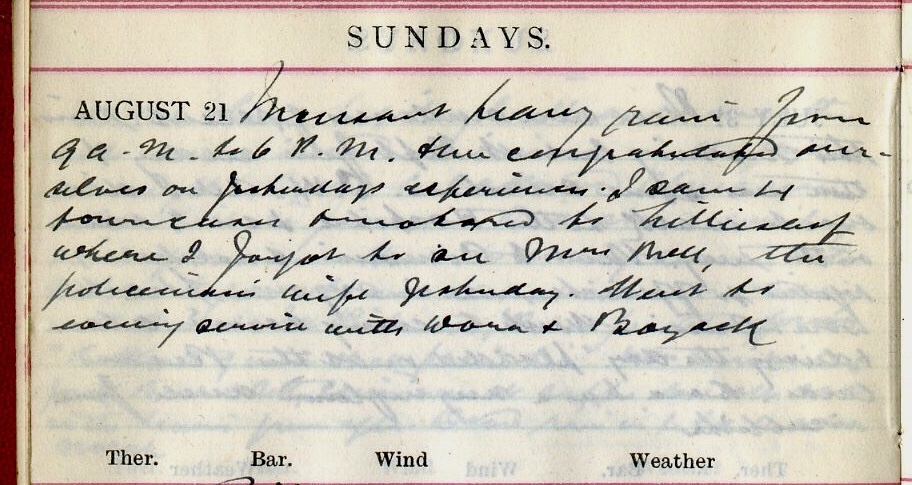 SUNDAYS.
AUGUST 21 Incessant heavy rain from
9 a.m. to 6 P.M. & we congratulated our-
selves on yesterdays experiences. I saw 4
town cases & motored to
where I forgot to see Mrs Bell, the
policeman's wife yesterday. Went to
evening service with Dora & Boyack
Ther. Bar. Wind Weather